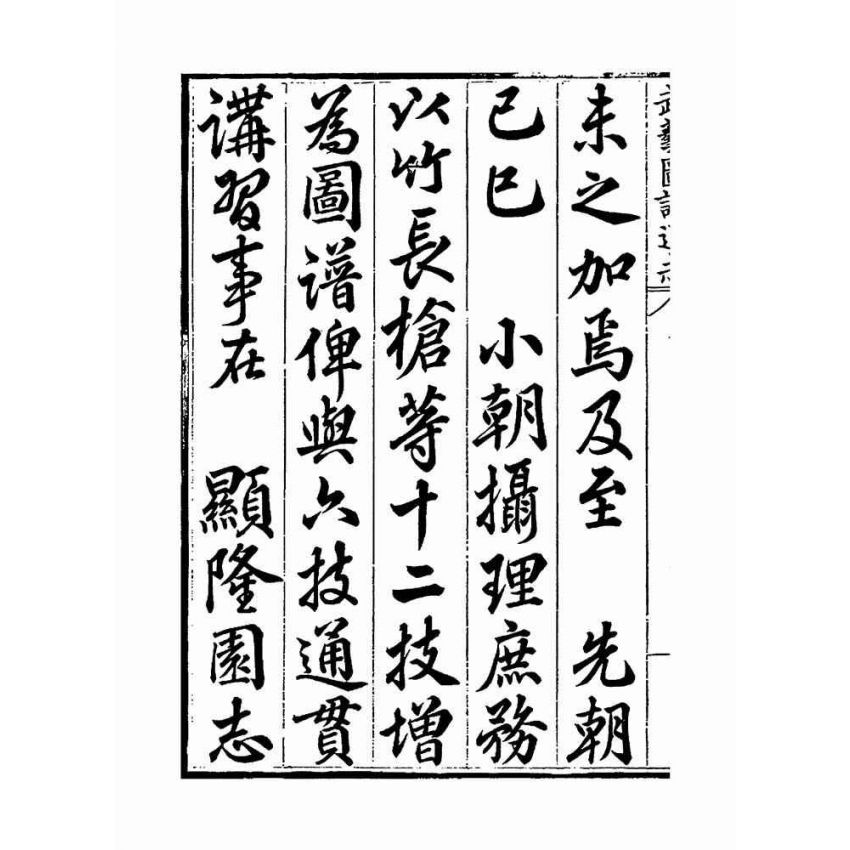 武藝圖譜通志
未之加焉及至 先朝
己巳 小朝攝理庶務
以竹長槍等十二技增
為圖譜俾與六技通貫
講習事在 顯隆園志